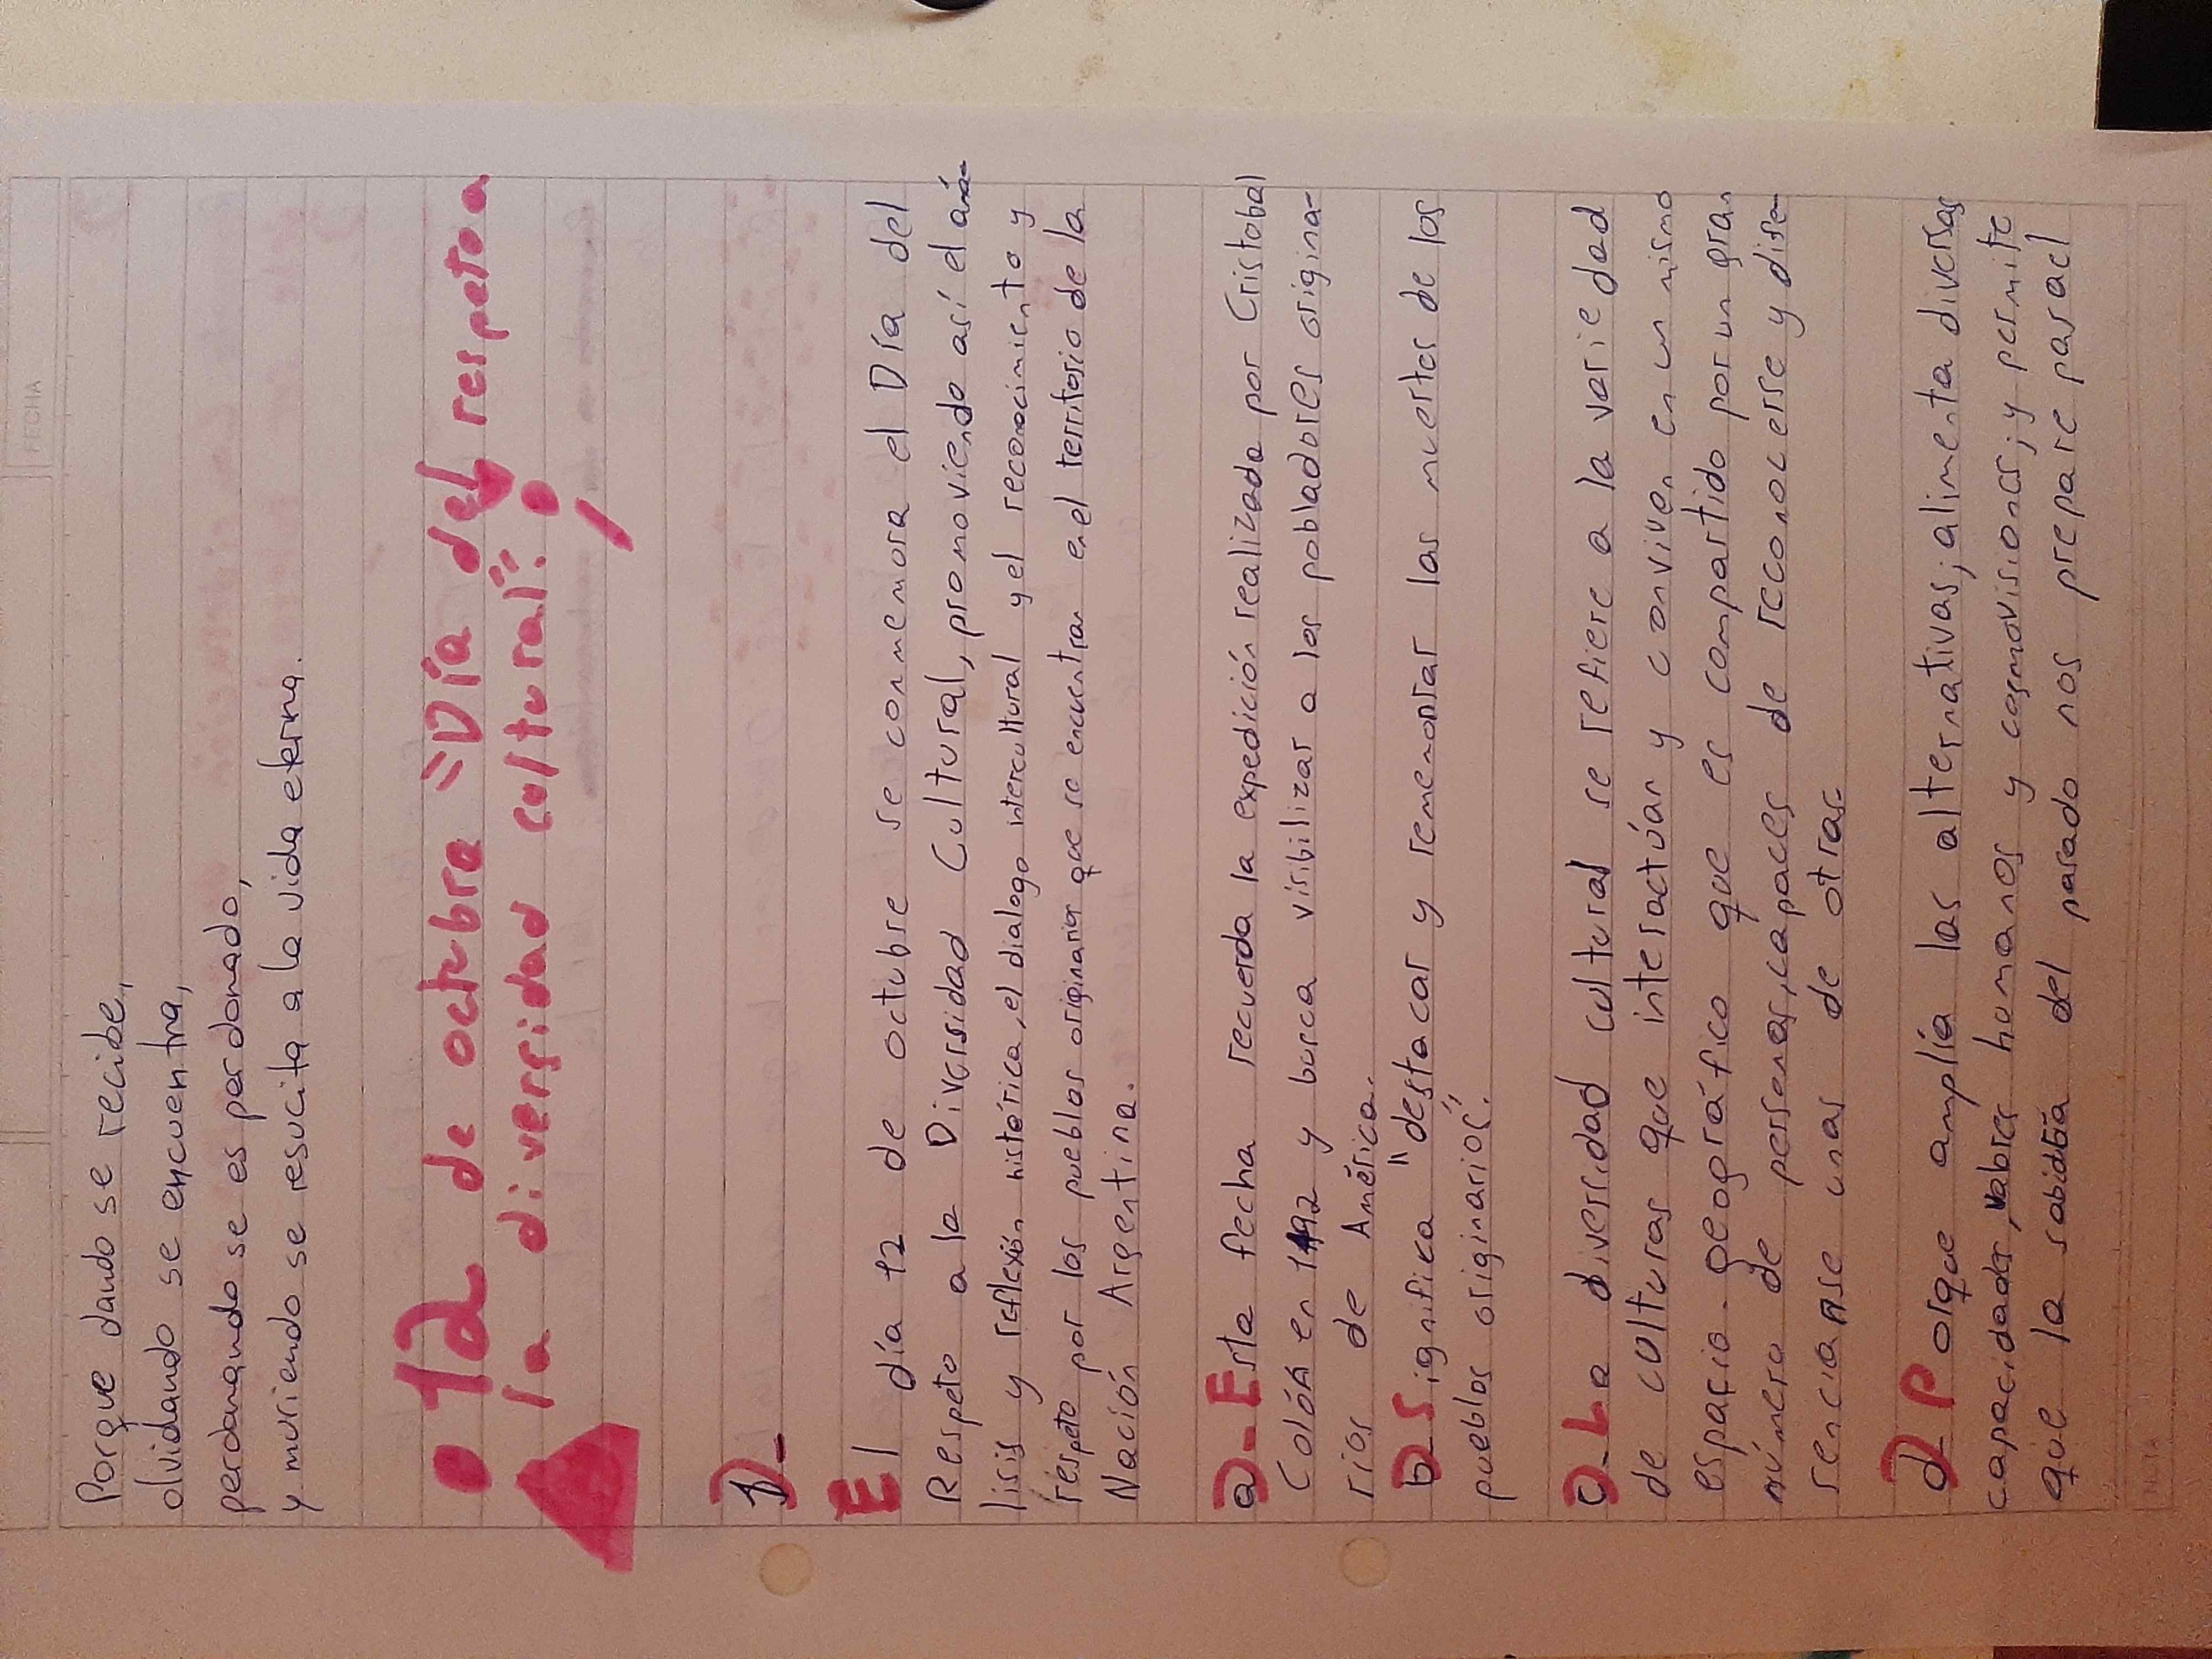 FECHA
Porque dando se recibe,
olvidando se encuentra,
perdonando se es perdonado,
y muriendo se resucita a la vida eterna.
• 12 de octubra "Día del respeto a
la diversidad cultural".
1)-
El día 12 de octubre se conmemora el Día del
Respeto a la Diversidad Cultural, promoviendo así el aná-
lisis y reflexión histórica, el dialogo intercultural y el reconocimiento y
respeto por los pueblos originarios que se encuentran en el territorio de la
Nación Argentina.
a- Esta fecha recuerda la expedición realizada por Cristobal
Colón en 1492 y busca visibilizar a los pobladores origina-
rios de América.
b- Significa "destacar y rememorar las muertes de los
pueblos originarios".
c- La diversidad cultural se refiere a la variedad
de culturas que interactúan y conviven en un mismo
espacio geográfico que es compartido por un gran
número de personas, capaces de reconocerse y dife-
renciarse unas de otras.
d- Porque amplía las alternativas; alimenta diversas
capacidades, valores humanos y cosmovisiones; y permite
que la sabiduría del pasado nos prepare para el